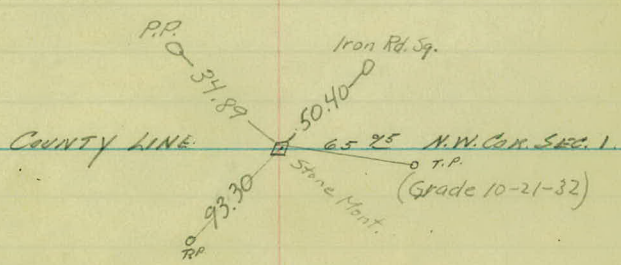 P.P.
Iron Rd. Sq.
34.89
50.40
COUNTY LINE.
65 95
N.W. COR. SEC. 1.
T.P.
(Grade 10-21-32)
Stone Mont.
93.30